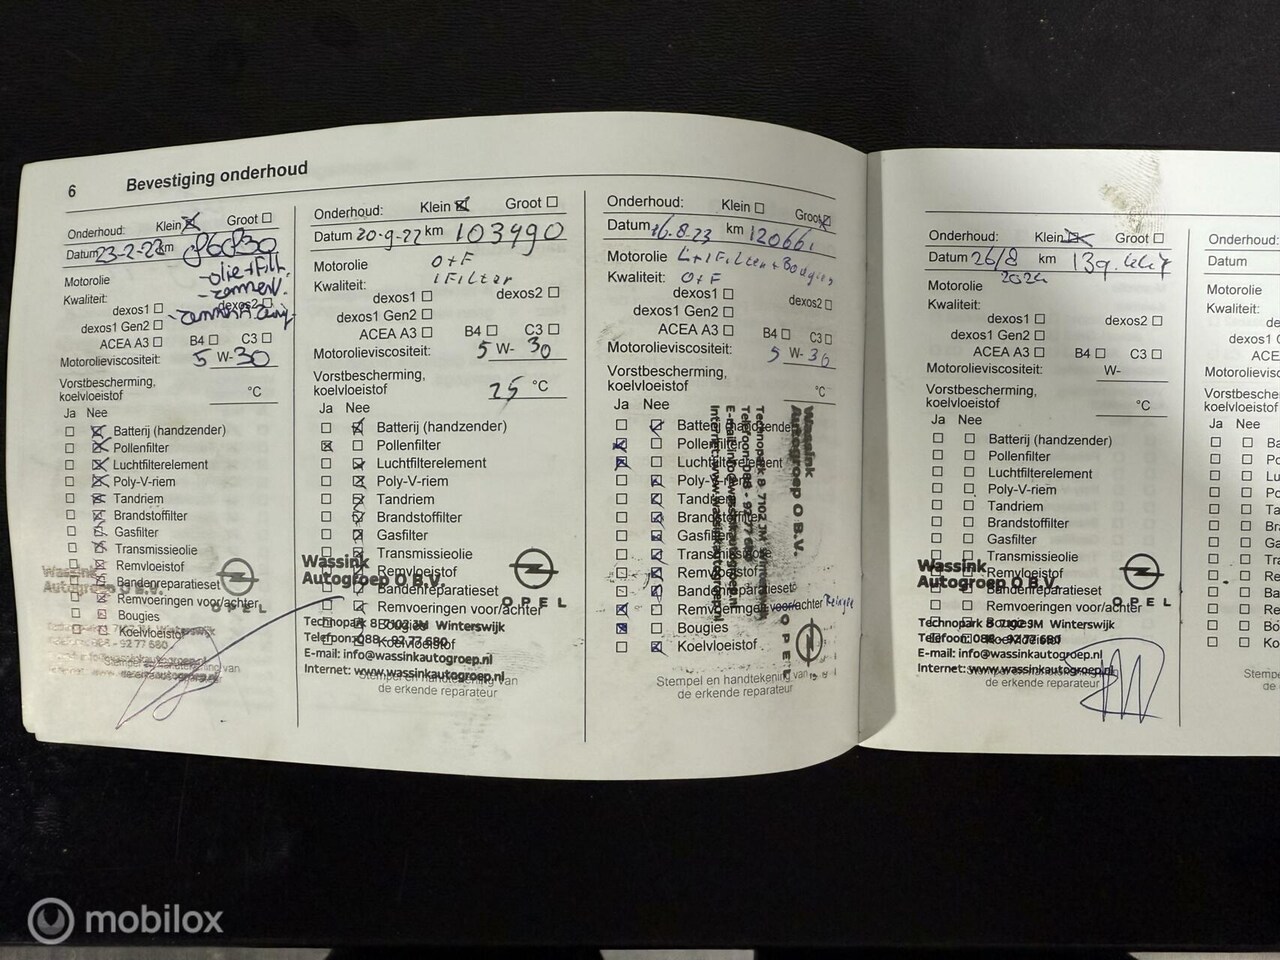 6 Bevestiging onderhoud
Onderhoud: Klein Groot
Datum 23-2-22 km
- olie + filt.
Motorolie
Kwaliteit:
dexos1 dexos2
dexos1 Gen2
ACEA A3 B4 C3
Motorolieviscositeit: 5 W-30
Vorstbescherming,
koelvloeistof °C
Ja Nee
Batterij (handzender)
Pollenfilter
Luchtfilterelement
Poly-V-riem
Tandriem
Brandstoffilter
Gasfilter
Transmissieolie
Remvloeistof
Bandenreparatieset
Remvoeringen voor/achter
Bougies
Koelvloeistof
Wassink
Autogroep O B.V.
OPEL
Stempel en handtekening van
de erkende reparateur
Onderhoud: Klein Groot
Datum 20-9-22 km 103490
Motorolie O+F
Kwaliteit: 1 Filter
dexos1 dexos2
dexos1 Gen2
ACEA A3 B4 C3
Motorolieviscositeit: 5 W- 30
Vorstbescherming,
koelvloeistof 25 °C
Ja Nee
Batterij (handzender)
Pollenfilter
Luchtfilterelement
Poly-V-riem
Tandriem
Brandstoffilter
Gasfilter
Transmissieolie
Remvloeistof
Bandenreparatieset
Remvoeringen voor/achter
Bougies
Koelvloeistof
Wassink
Autogroep O B.V.
OPEL
Technopark 8 7102 JM Winterswijk
Telefoon: 088 - 92 77 680
E-mail: info@wassinkautogroep.nl
Internet: www.wassinkautogroep.nl
Stempel en handtekening van
de erkende reparateur
Onderhoud: Klein Groot
Datum 16.8.23 km 120661
Motorolie L+I Filter + Bougies
Kwaliteit: O+F
dexos1 dexos2
dexos1 Gen2
ACEA A3 B4 C3
Motorolieviscositeit: 5 W- 30
Vorstbescherming,
koelvloeistof °C
Ja Nee
Batterij (handzender)
Pollenfilter
Luchtfilterelement
Poly-V-riem
Tandriem
Brandstoffilter
Gasfilter
Transmissieolie
Remvloeistof
Bandenreparatieset
Remvoeringen voor/achter
Bougies
Koelvloeistof
Wassink
Autogroep O B.V.
Technopark 8 7102 JM Winterswijk
Telefoon: 088 - 92 77 680
E-mail: info@wassinkautogroep.nl
Internet: www.wassinkautogroep.nl
OPEL
Stempel en handtekening van
de erkende reparateur
Onderhoud: Klein Groot
Datum 26/8 km 139.447
2024
Motorolie
Kwaliteit:
dexos1 dexos2
dexos1 Gen2
ACEA A3 B4 C3
Motorolieviscositeit: W-
Vorstbescherming,
koelvloeistof °C
Ja Nee
Batterij (handzender)
Pollenfilter
Luchtfilterelement
Poly-V-riem
Tandriem
Brandstoffilter
Gasfilter
Transmissieolie
Remvloeistof
Bandenreparatieset
Remvoeringen voor/achter
Bougies
Koelvloeistof
Wassink
Autogroep O B.V.
OPEL
Technopark 8 7102 JM Winterswijk
Telefoon: 088 - 92 77 680
E-mail: info@wassinkautogroep.nl
Internet: www.wassinkautogroep.nl
Stempel en handtekening van
de erkende reparateur
Onderhoud:
Datum
Motorolie
Kwaliteit:
ACE
Motorolievisc
Vorstbesche
koelvloeistof
Ja Nee
Ba
Po
Lu
Po
Ta
Br
Ga
Tr
Re
Ba
Re
Bo
Ko
Stemp
de
mobilox